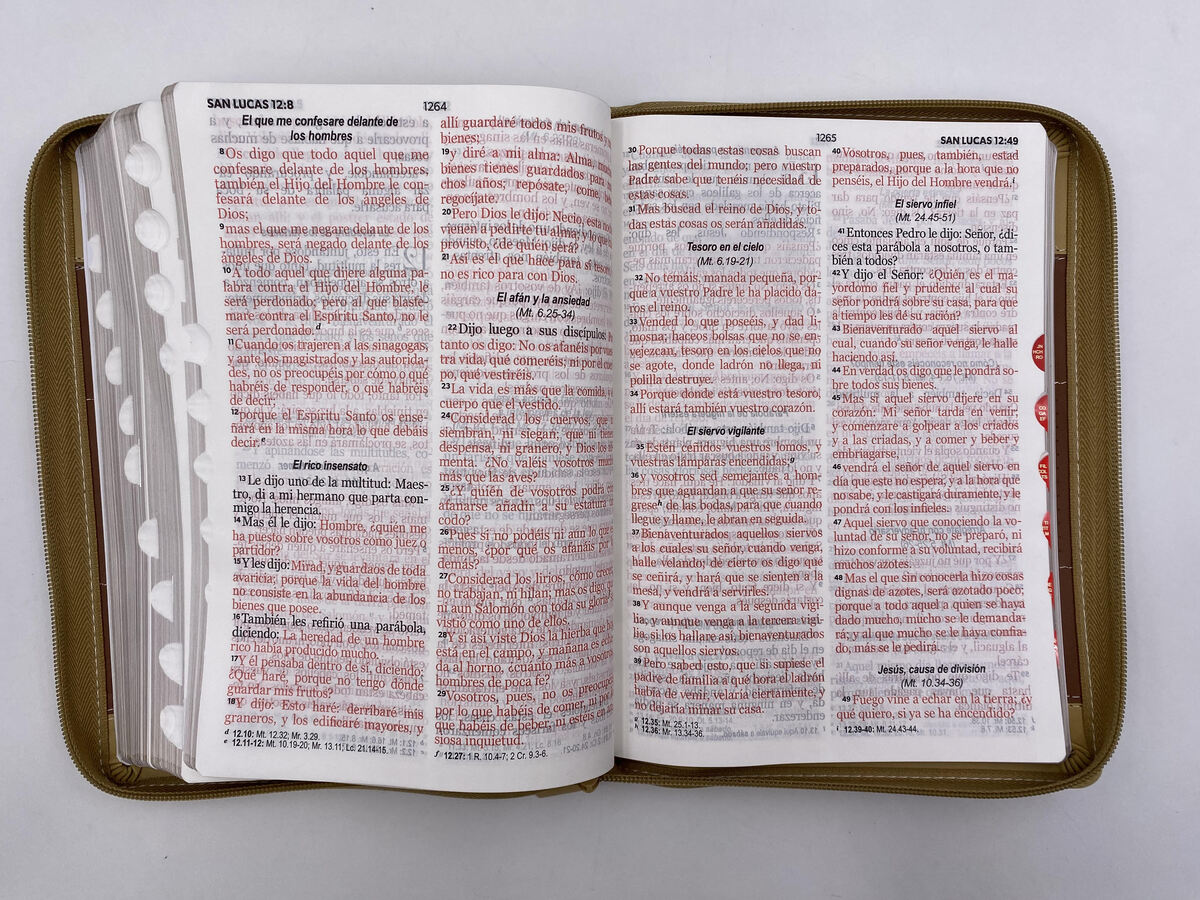 SAN LUCAS 12:8
1264
El que me confesare delante de
los hombres
8 Os digo que todo aquel que me
confesare delante de los hombres,
también el Hijo del Hombre le con-
fesará delante de los ángeles de
Dios;
9 mas el que me negare delante de los
hombres, será negado delante de los
ángeles de Dios.
10 A todo aquel que dijere alguna pa-
labra contra el Hijo del Hombre, le
será perdonado; pero al que blasfe-
mare contra el Espíritu Santo, no le
será perdonado. d
11 Cuando os trajeren a las sinagogas,
y ante los magistrados y las autorida-
des, no os preocupéis por cómo o qué
habréis de responder, o qué habréis
de decir;
12 porque el Espíritu Santo os ense-
ñará en la misma hora lo que debáis
decir. e
El rico insensato
13 Le dijo uno de la multitud: Maes-
tro, di a mi hermano que parta con-
migo la herencia.
14 Mas él le dijo: Hombre, ¿quién me
ha puesto sobre vosotros como juez o
partidor?
15 Y les dijo: Mirad, y guardaos de toda
avaricia; porque la vida del hombre
no consiste en la abundancia de los
bienes que posee.
16 También les refirió una parábola,
diciendo: La heredad de un hombre
rico había producido mucho.
17 Y él pensaba dentro de sí, diciendo:
¿Qué haré, porque no tengo dónde
guardar mis frutos?
18 Y dijo: Esto haré: derribaré mis
graneros, y los edificaré mayores, y
d 12.10: Mt. 12.32; Mr. 3.29.
e 12.11-12: Mt. 10.19-20; Mr. 13.11; Lc. 21.14-15.
allí guardaré todos mis frutos y
bienes;
19 y diré a mi alma: Alma,
bienes tienes guardados para
chos años; repósate, come,
regocíjate.
20 Pero Dios le dijo: Necio, esta
vienen a pedirte tu alma; y lo
provisto, ¿de quién será?
21 Así es el que hace para sí tesoro
no es rico para con Dios.
El afán y la ansiedad
(Mt. 6.25-34)
22 Dijo luego a sus discípulos:
tanto os digo: No os afanéis por
tra vida, qué comeréis; ni por el
po, qué vestiréis.
23 La vida es más que la comida, y
cuerpo que el vestido.
24 Considerad los cuervos, que
siembran, ni siegan; que ni
despensa, ni granero, y Dios los
menta. ¿No valéis vosotros
más que las aves?
25 ¿Y quién de vosotros podrá
afanarse añadir a su estatura
codo?
26 Pues si no podéis ni aun lo que
menos, ¿por qué os afanáis por
demás?
27 Considerad los lirios, cómo
no trabajan, ni hilan; mas os digo,
ni aun Salomón con toda su gloria
vistió como uno de ellos.
28 Y si así viste Dios la hierba que
está en el campo, y mañana es
da al horno, ¿cuánto más a vosotros
hombres de poca fe?
29 Vosotros, pues, no os preocupéis
por lo que habéis de comer, ni por
que habéis de beber, ni estéis en
siosa inquietud.
f 12.27: 1 R. 10.4-7; 2 Cr. 9.3-6.
1265
SAN LUCAS 12:49
30 Porque todas estas cosas buscan
las gentes del mundo; pero vuestro
Padre sabe que tenéis necesidad de
estas cosas.
31 Mas buscad el reino de Dios, y to-
das estas cosas os serán añadidas.
Tesoro en el cielo
(Mt. 6.19-21)
32 No temáis, manada pequeña, por-
que a vuestro Padre le ha placido da-
ros el reino.
33 Vended lo que poseéis, y dad li-
mosna; haceos bolsas que no se en-
vejezcan, tesoro en los cielos que no
se agote, donde ladrón no llega, ni
polilla destruye.
34 Porque donde está vuestro tesoro,
allí estará también vuestro corazón.
El siervo vigilante
35 Estén ceñidos vuestros lomos, y
vuestras lámparas encendidas; g
36 y vosotros sed semejantes a hom-
bres que aguardan a que su señor re-
grese h de las bodas, para que cuando
llegue y llame, le abran en seguida.
37 Bienaventurados aquellos siervos
a los cuales su señor, cuando venga,
halle velando; de cierto os digo que
se ceñirá, y hará que se sienten a la
mesa, y vendrá a servirles.
38 Y aunque venga a la segunda vigi-
lia, y aunque venga a la tercera vigi-
lia, si los hallare así, bienaventurados
son aquellos siervos.
39 Pero sabed esto, que si supiese el
padre de familia a qué hora el ladrón
había de venir, velaría ciertamente, y
no dejaría minar su casa.
g 12.35: Mt. 25.1-13.
h 12.36: Mr. 13.34-36.
40 Vosotros, pues, también, estad
preparados, porque a la hora que no
penséis, el Hijo del Hombre vendrá. i
El siervo infiel
(Mt. 24.45-51)
41 Entonces Pedro le dijo: Señor, ¿di-
ces esta parábola a nosotros, o tam-
bién a todos?
42 Y dijo el Señor: ¿Quién es el ma-
yordomo fiel y prudente al cual su
señor pondrá sobre su casa, para que
a tiempo les dé su ración?
43 Bienaventurado aquel siervo al
cual, cuando su señor venga, le halle
haciendo así.
44 En verdad os digo que le pondrá so-
bre todos sus bienes.
45 Mas si aquel siervo dijere en su
corazón: Mi señor tarda en venir;
y comenzare a golpear a los criados
y a las criadas, y a comer y beber y
embriagarse,
46 vendrá el señor de aquel siervo en
día que este no espera, y a la hora que
no sabe, y le castigará duramente, y le
pondrá con los infieles.
47 Aquel siervo que conociendo la vo-
luntad de su señor, no se preparó, ni
hizo conforme a su voluntad, recibirá
muchos azotes.
48 Mas el que sin conocerla hizo cosas
dignas de azotes, será azotado poco;
porque a todo aquel a quien se haya
dado mucho, mucho se le demanda-
rá; y al que mucho se le haya confia-
do, más se le pedirá.
Jesús, causa de división
(Mt. 10.34-36)
49 Fuego vine a echar en la tierra; ¿y
qué quiero, si ya se ha encendido?
i 12.39-40: Mt. 24.43-44.